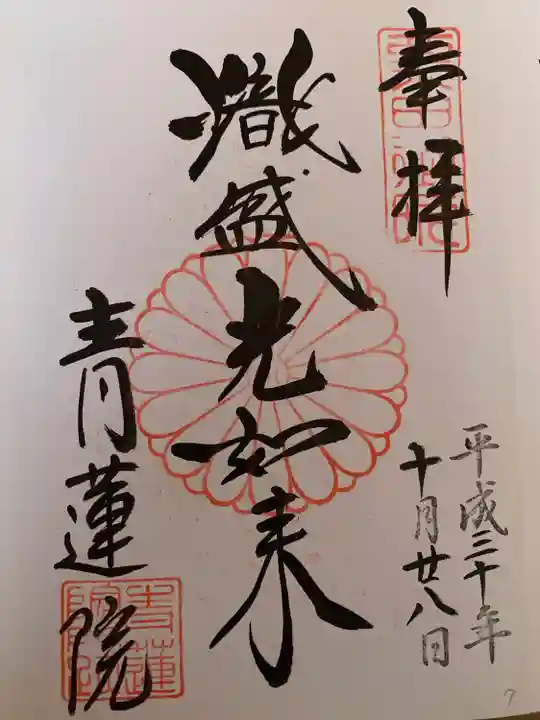 奉拝
平成三十年
十月廿八日
熾盛光如来
青蓮院
青蓮